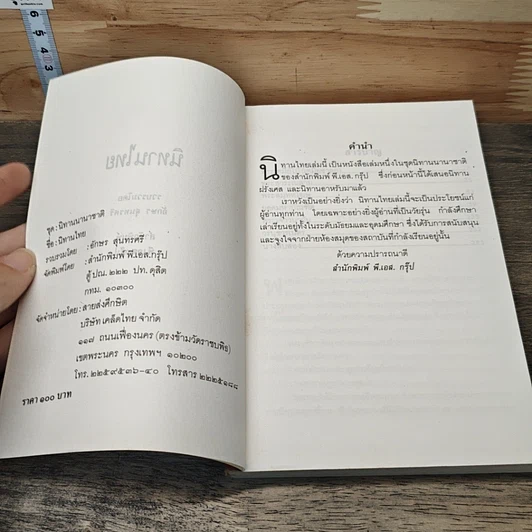 ชุด : นิทานนานาชาติ
ชื่อ : นิทานไทย
รวบรวมโดย : อักษร สุนทรศรี
จัดพิมพ์โดย : สำนักพิมพ์ พี.เอส. กรุ๊ป
ตู้ ปณ. ๒๒๒ ปท. ดุสิต
กทม. ๑๐๓๐๐
จัดจำหน่ายโดย : สายส่งศึกษิต
บริษัท เคล็ดไทย จำกัด
๑๑๗ ถนนเฟื่องนคร (ตรงข้ามวัดราชบพิธ)
เขตพระนคร กรุงเทพฯ ๑๐๒๐๐
โทร. ๒๒๕๙๕๓๖-๔๐ โทรสาร ๒๒๒๕๑๘๘
ราคา ๑๐๐ บาท
คำนำ
นิทานไทยเล่มนี้ เป็นหนังสือเล่มหนึ่งในชุดนิทานนานาชาติ
ของสำนักพิมพ์ พี.เอส. กรุ๊ป ซึ่งก่อนหน้านี้ได้เสนอนิทาน
ฝรั่งเศส และนิทานอาหรับมาแล้ว
เราหวังเป็นอย่างยิ่งว่า นิทานไทยเล่มนี้จะเป็นประโยชน์แก่
ผู้อ่านทุกท่าน โดยเฉพาะอย่างยิ่งผู้อ่านที่เป็นวัยรุ่น กำลังศึกษา
เล่าเรียนอยู่ทั้งในระดับมัธยมและอุดมศึกษา ซึ่งได้รับการสนับสนุน
และจูงใจจากฝ่ายห้องสมุดของสถาบันที่กำลังเรียนอยู่นั้น
ด้วยความปรารถนาดี
สำนักพิมพ์ พี.เอส. กรุ๊ป
6
5
4
3